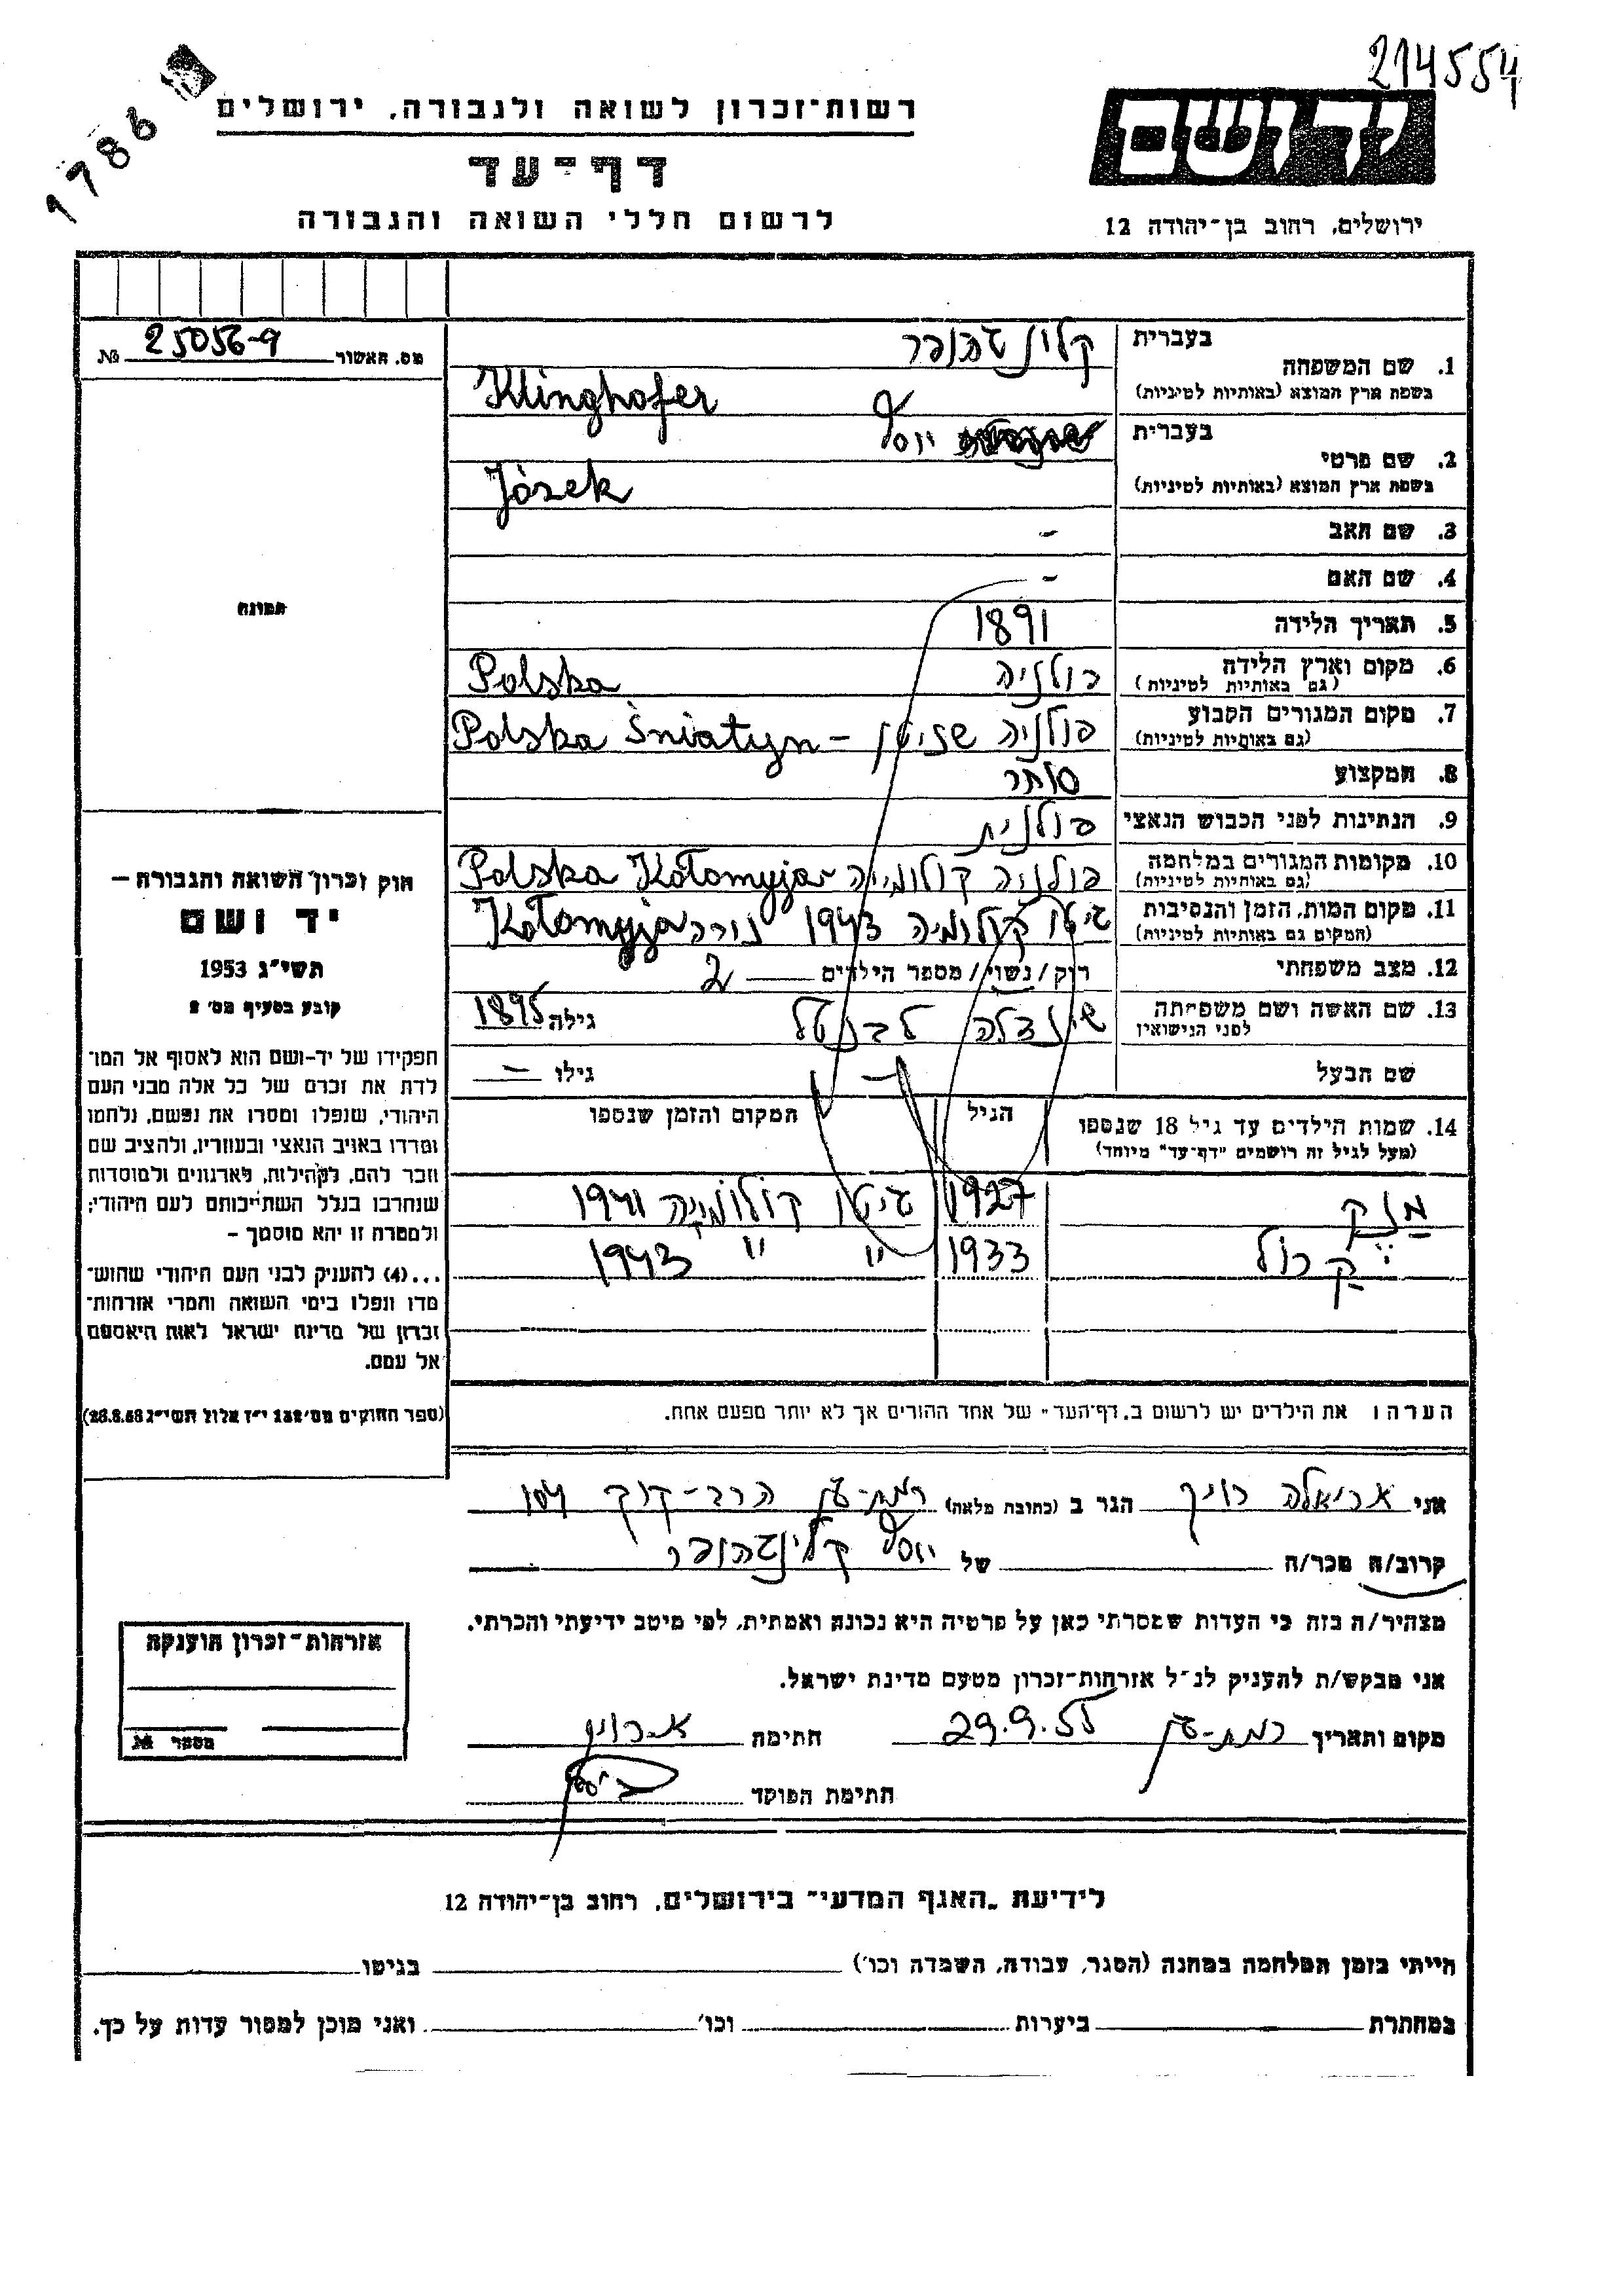 214554
1788
רשות־זכרון לשואה ולגבורה, ירושלים
דף־עד
לרשום חללי השואה והגבורה
יד ושם
ירושלים, רחוב בן־יהודה 12
מס. האשור 25056-9 №
תמונה
חוק זכרון השואה והגבורה —
יד ושם
תשי״ג 1953
קובע בסעיף מס׳ 2
תפקידו של יד-ושם הוא לאסוף אל המו־
לדת את זכרם של כל אלה מבני העם
היהודי, שנפלו ומסרו את נפשם, נלחמו
ומרדו באויב הנאצי ובעוזריו, ולהציב שם
וזכר להם, לקהילות, לארגונים ולמוסדות
שנחרבו בגלל השתייכותם לעם היהודי;
ולמטרה זו יהא מוסמך —
...(4) להעניק לבני העם היהודי שהוש־
מדו ונפלו בימי השואה והמרי אזרחות־
זכרון של מדינת ישראל לאות היאספם
אל עמם.
(ספר החוקים מס׳ 132 י״ז אלול תשי״ג 28.8.53)
בעברית קלינגהופר
1. שם המשפחה
בשפת ארץ המוצא (באותיות לטיניות) Klinghofer
בעברית יוסף
2. שם פרטי
בשפת ארץ המוצא (באותיות לטיניות) Józek
3. שם האב -
4. שם האם -
5. תאריך הלידה 1891
6. מקום וארץ הלידה פולניה Polska
(גם באותיות לטיניות)
7. מקום המגורים הקבוע פולניה שניטין – Polska Śniatyn
(גם באותיות לטיניות)
8. המקצוע סוחר
9. הנתינות לפני הכבוש הנאצי פולנית
10. מקומות המגורים במלחמה פולניה קולומייה Polska Kołomyja
(גם באותיות לטיניות)
11. מקום המות, הזמן והנסיבות גיטו קולומיה 1943 נורה Kołomyja
(המקום גם באותיות לטיניות)
12. מצב משפחתי רוק/נשוי/ מספר הילדים 2
13. שם האשה ושם משפחתה שינדלה לבנטל גילה 1895
לפני הנישואין
שם הבעל — גילו —
14. שמות הילדים עד גיל 18 שנספו הגיל המקום והזמן שנספו
(מעל לגיל זה רושמים "דף־עד" מיוחד)
מנק 1927 גיטו קולומייה 1941
קרול 1933 " " 1943
הערה: את הילדים יש לרשום ב„דף־העד" של אחד ההורים אך לא יותר מפעם אחת.
אני אריאלה רויך הגר ב (כתובת מלאה) רמת-גן הרב-קוק 104
קרוב/ה מכר/ה של יוסף קלינגהופר
מצהיר/ה בזה כי העדות שמסרתי כאן על פרטיה היא נכונה ואמתית, לפי מיטב ידיעתי והכרתי.
אני מבקש/ת להעניק לנ״ל אזרחות־זכרון מטעם מדינת ישראל.
מקום ותאריך רמת-גן 29.9.55 חתימה א. רויך
חתימת הפוקד
אזרחות־זכרון הוענקה
מספר №
לידיעת „האגף המדעי" בירושלים, רחוב בן־יהודה 12
הייתי בזמן המלחמה במחנה (הסגר, עבודה, השמדה וכו׳) בגיטו
במחתרת ביערות וכו׳ ואני מוכן למסור עדות על כך.